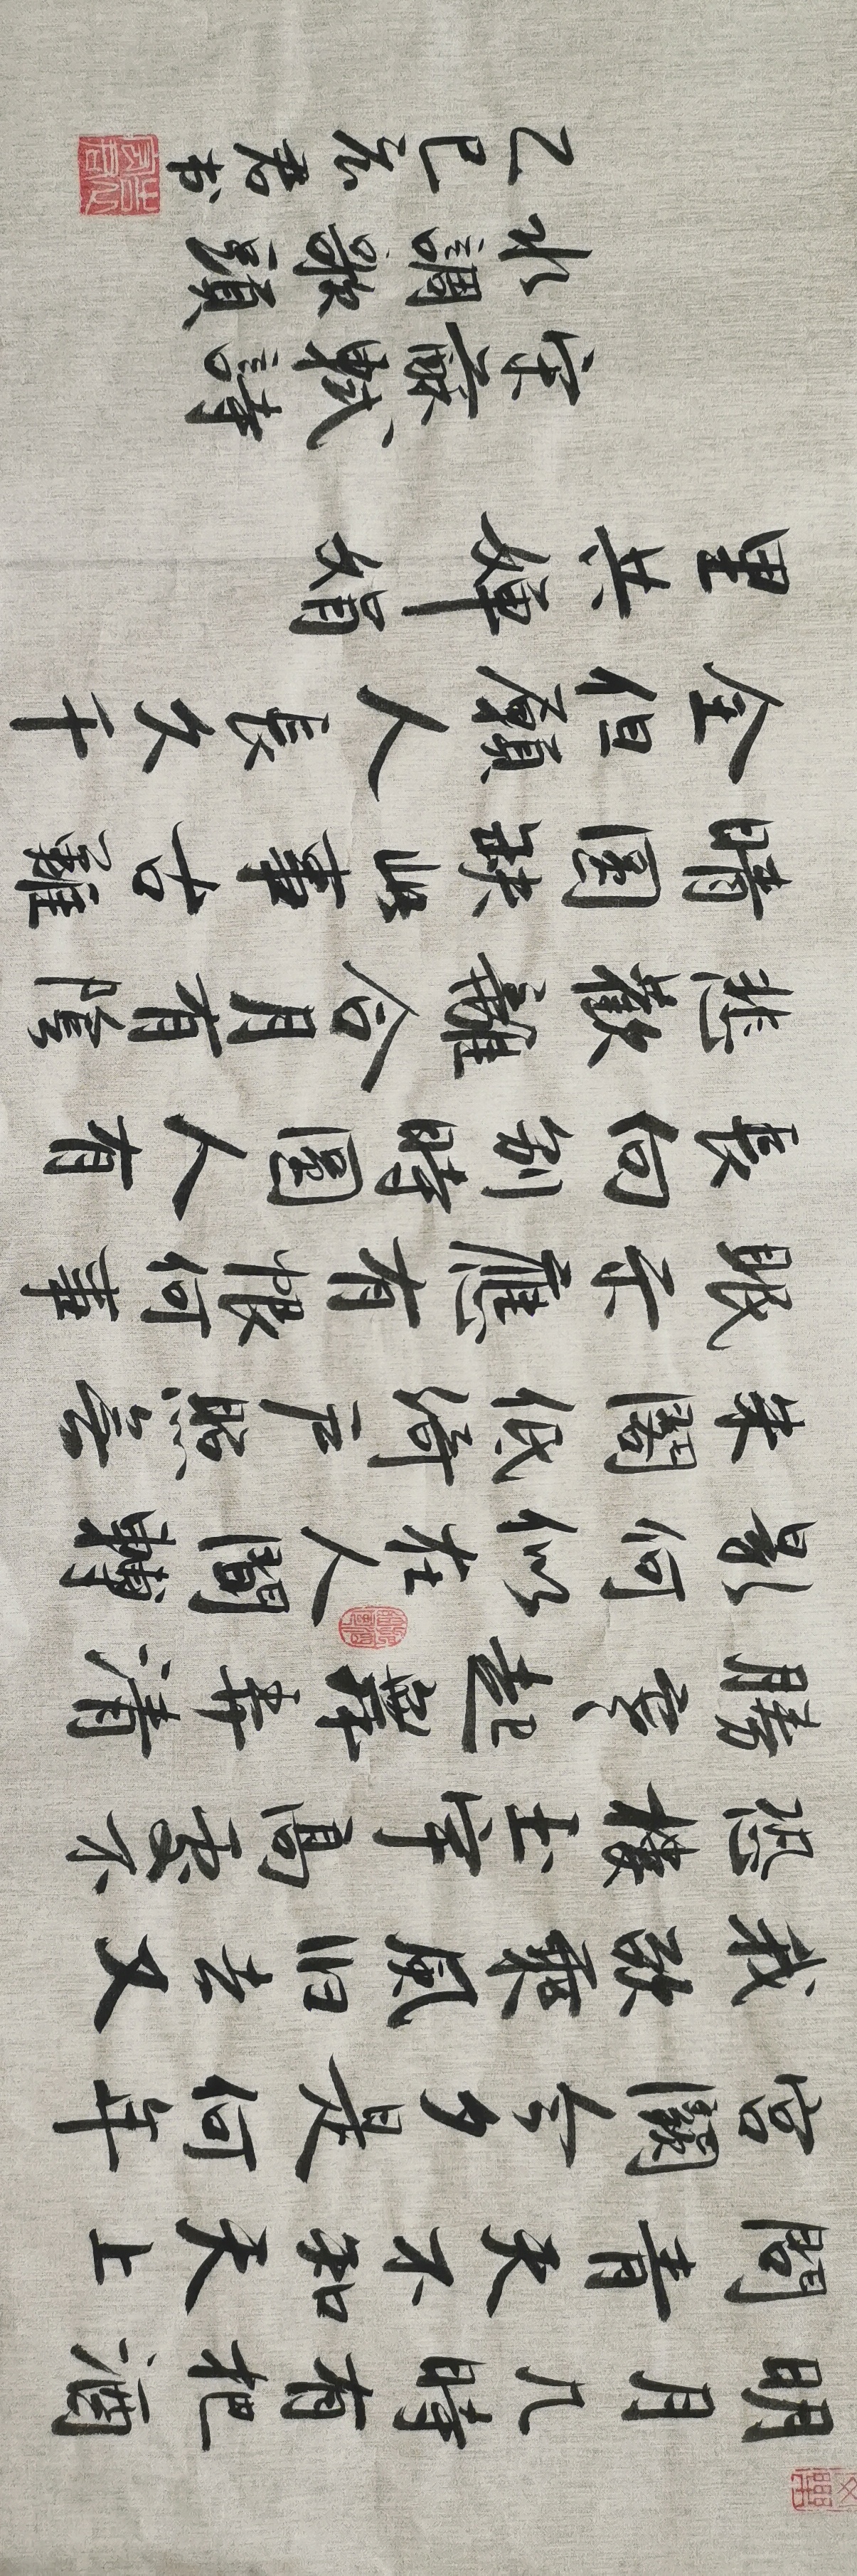 明月几時有把酒
問青天不知天上
宫闕今夕是何年
我欲乘風归去又
恐樓玉宇高處不
勝寒起舞弄清
影何似在人間轉
朱閣低綺户照无
眠不應有恨何事
長向别時圓人有
悲歡離合月有陰
晴圓缺此事古難
全但願人長久千
里共嬋娟
宋蘇軾詩
水調歌頭
乙巳君书